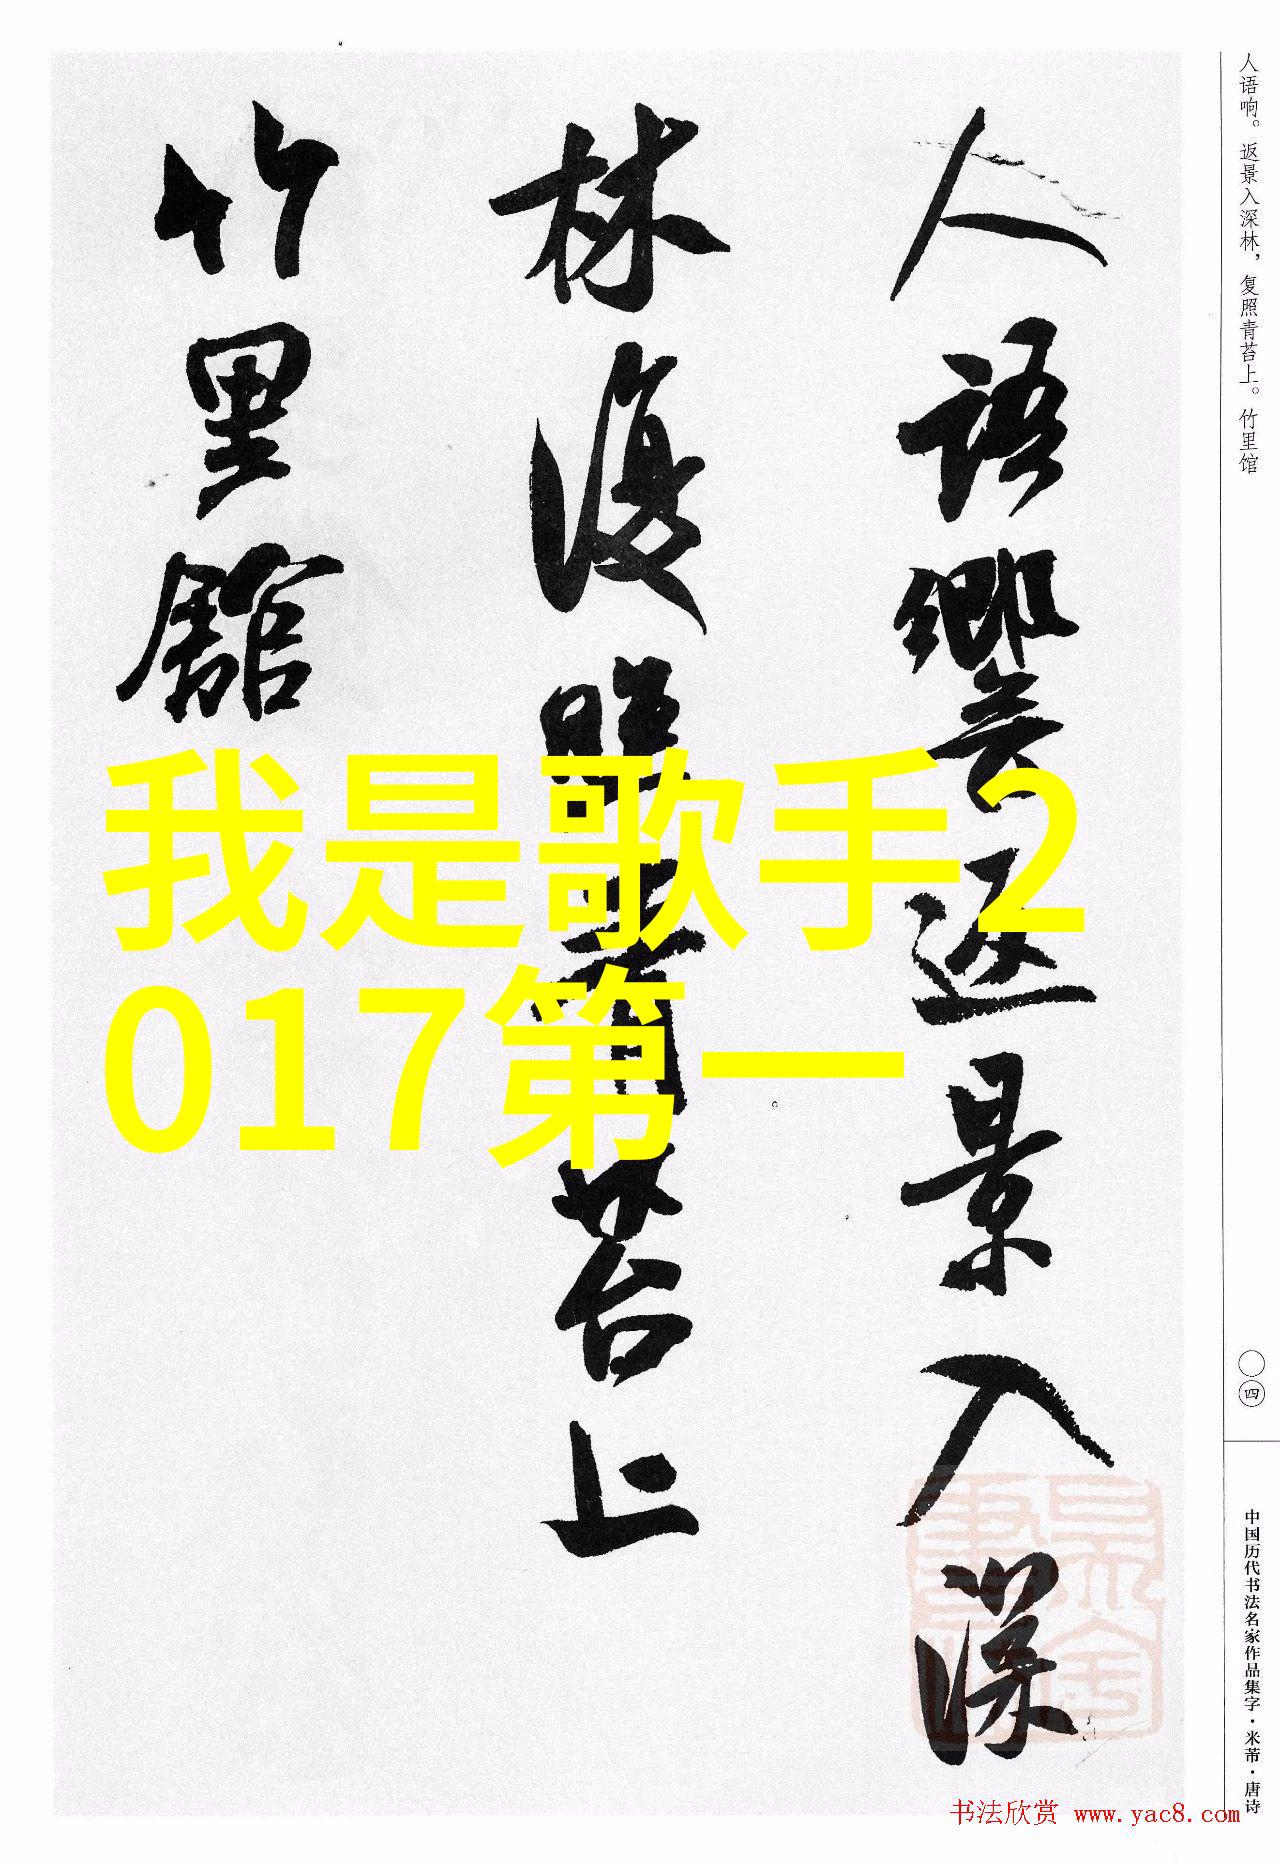 人语响。返景入深林，复照青苔上。竹里馆
人語響返景入深
林復照青苔上
竹里館
我是歌手2
017第一
〇四
中国历代书法名家作品集字·米芾·唐诗
书法欣赏 www.yac8.com